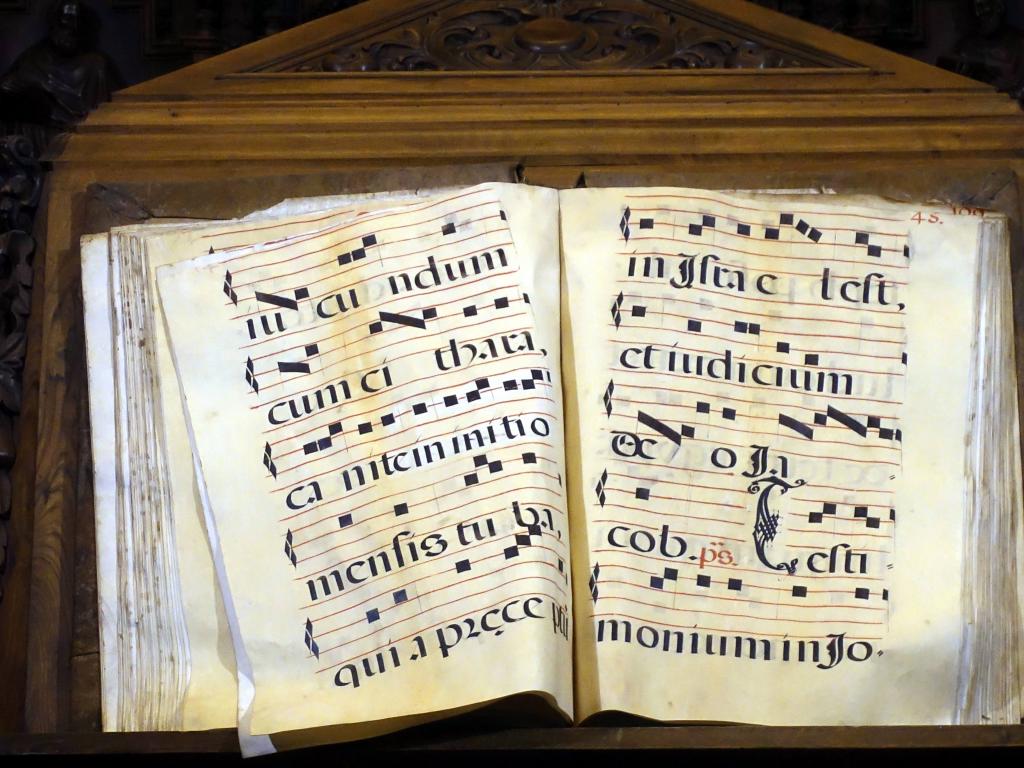 iu cu ndum
cum ci thara,
ca nite in initio
mensis tu ba,
qui a pręce
48.
in Israe l est,
et iudicium
Deo Ja
cob. ps. Testi
monium in Jo.